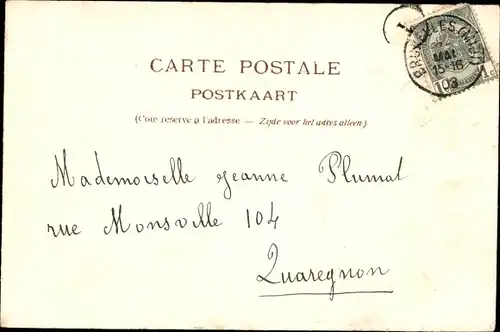 CARTE POSTALE
POSTKAART
(Côté réservé à l'adresse — Zijde voor het adres alleen.)
BRUXELLES
MAI
15-16
1903
Mademoiselle Jeanne Plumat
rue Monsville 104
Quaregnon